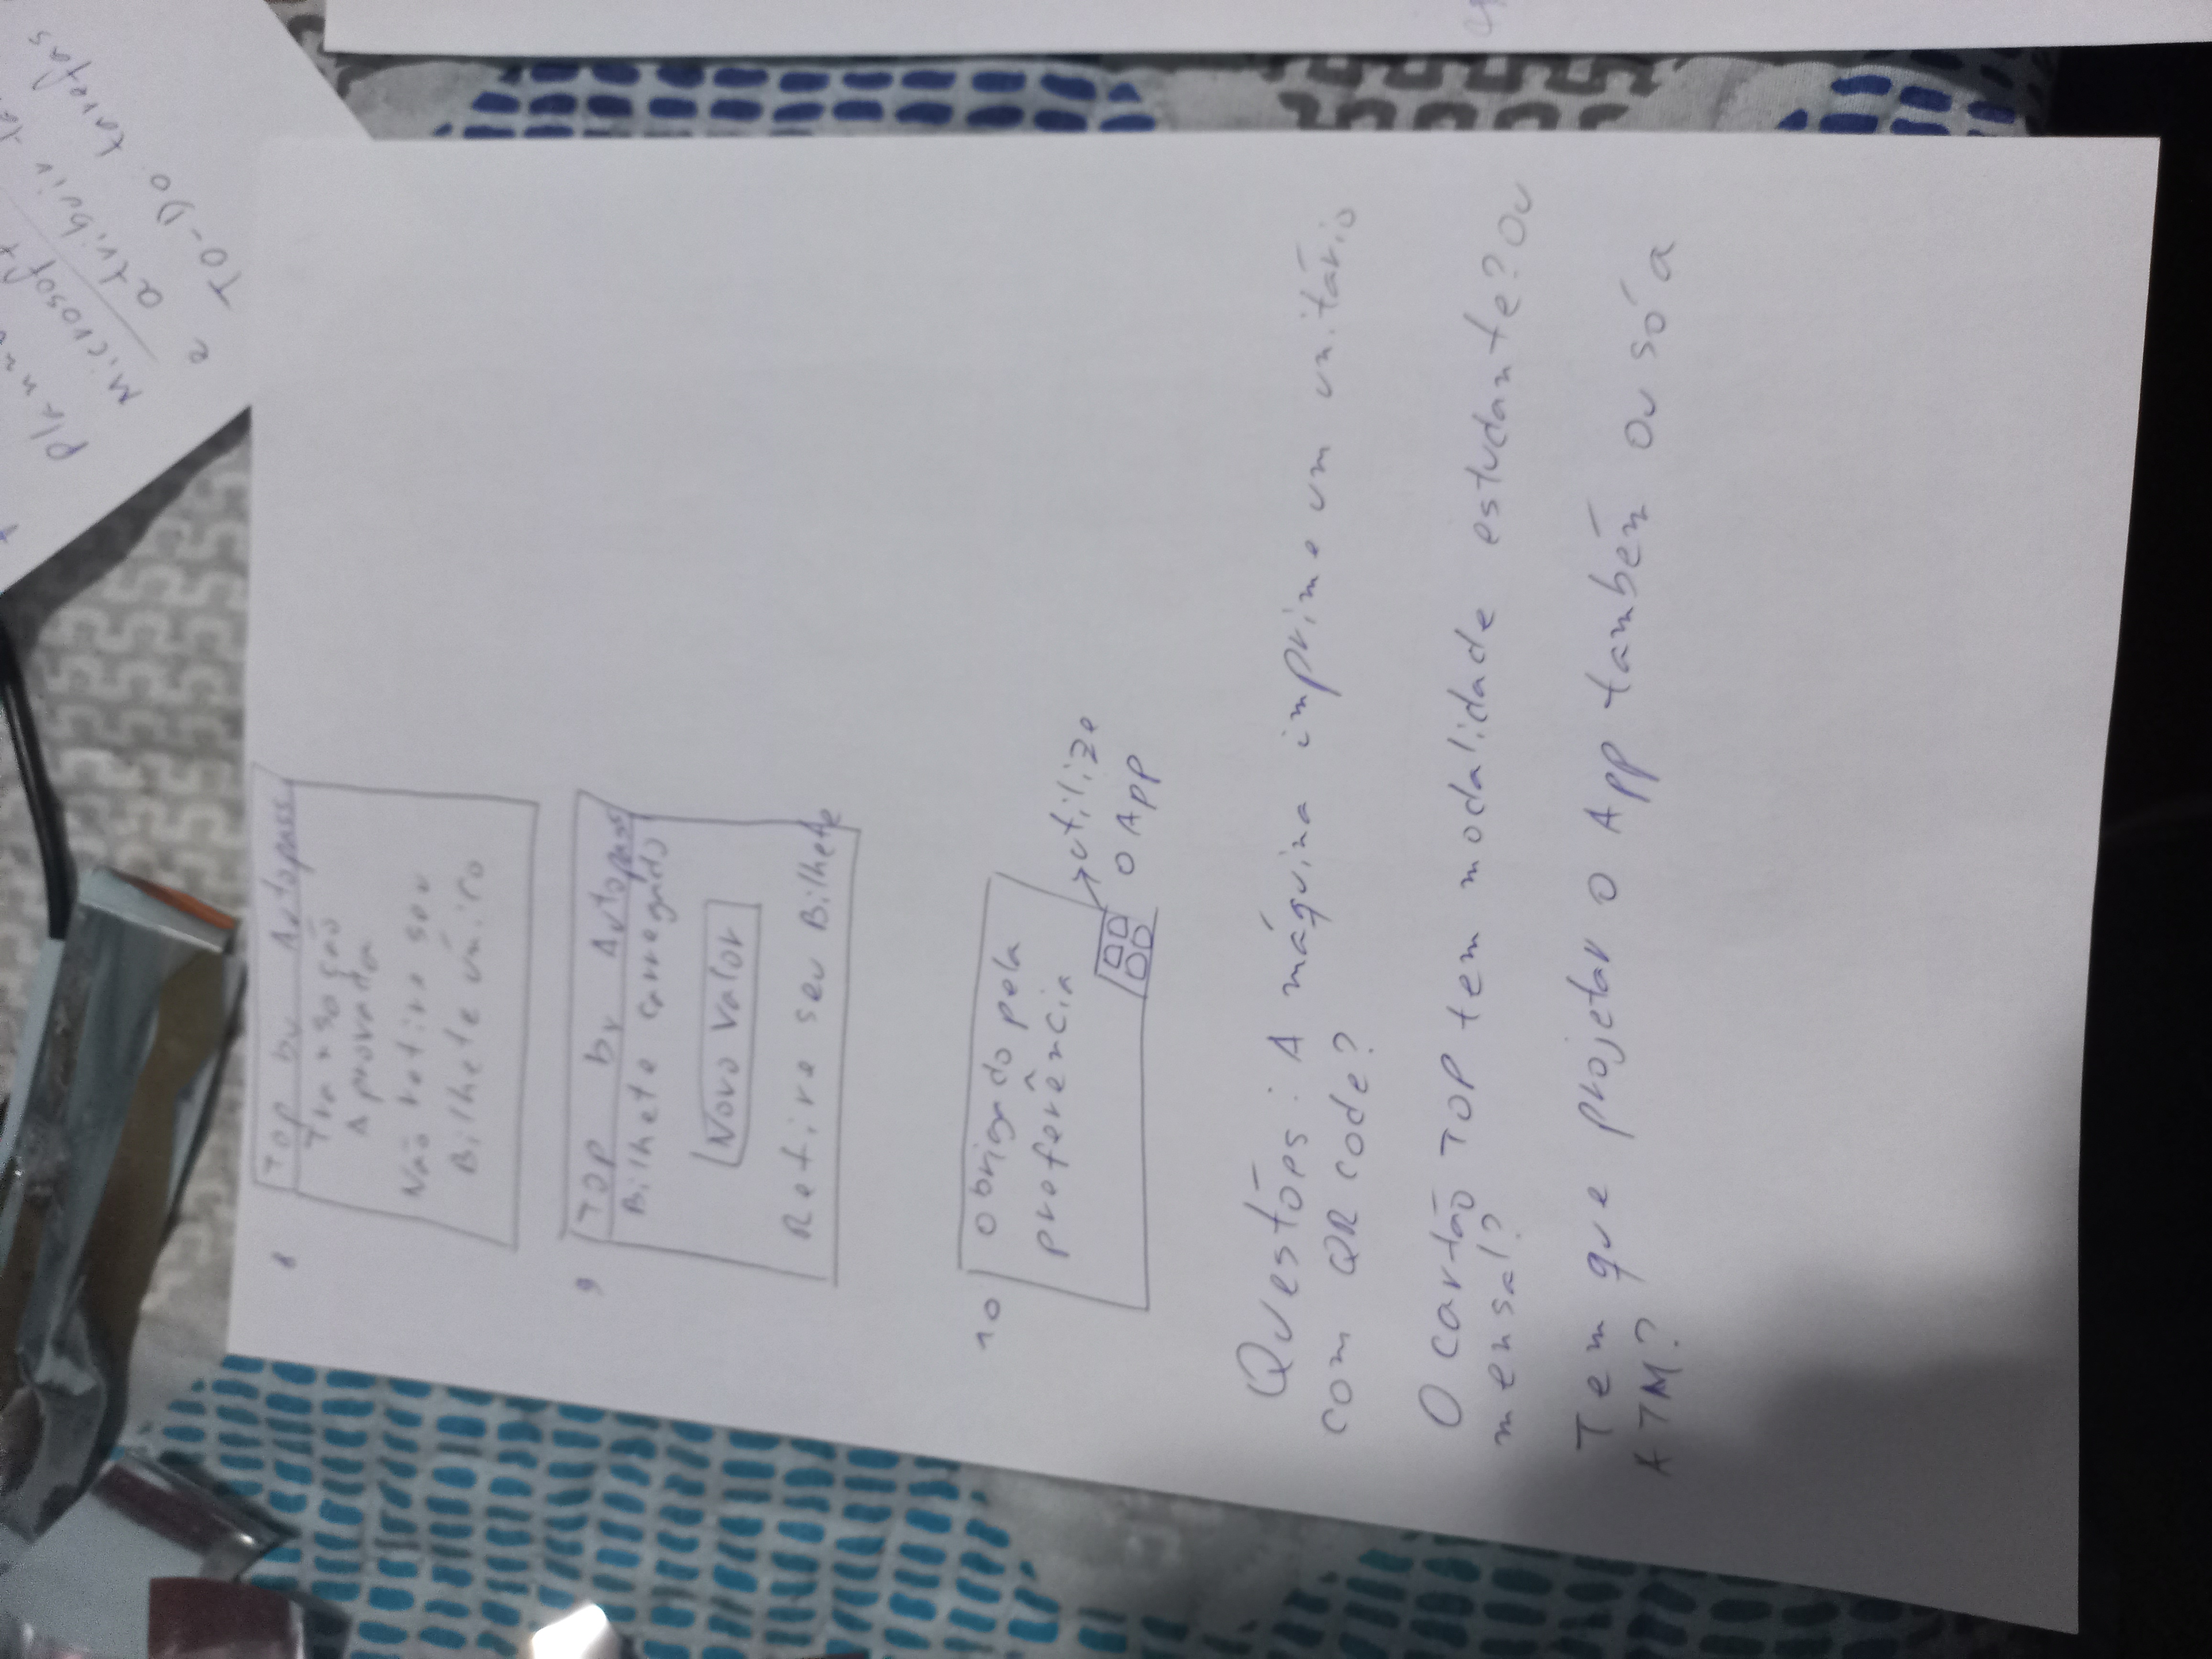 Microsoft
e atribuir
TO-DO tarefas
8
Top by Autopass
Transação
Aprovada
Não retire seu
Bilhete único
9
TOP by Autopass
Bilhete carregado
Novo Valor
Retire seu Bilhete
10
Obrigado pela
preferência
utilize
O App
Questões: A máquina imprime um unitário
com QR code?
O cartão TOP tem modalidade estudante? Ou
mensal?
Tem que projetar o App também ou só a
ATM?